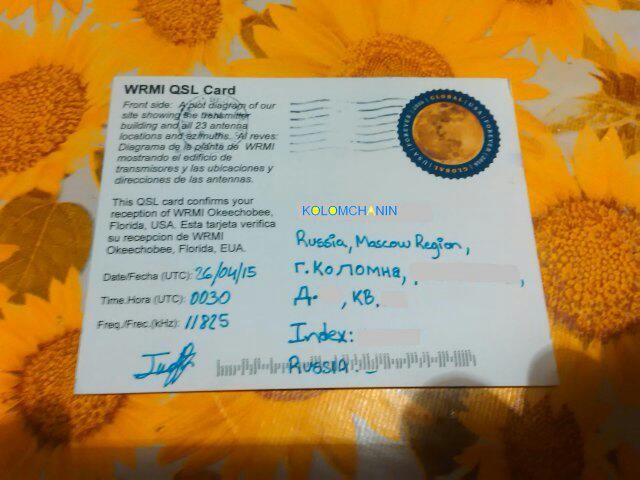 WRMI QSL Card
Front side: A plot diagram of our
site showing the transmitter
building and all 23 antenna
locations and azimuths. Al reves:
Diagrama de la planta de WRMI
mostrando el edificio de
transmisores y las ubicaciones y
direcciones de las antennas.
This QSL card confirms your
reception of WRMI Okeechobee,
Florida, USA. Esta tarjeta verifica
su recepcion de WRMI
Okeechobee, Florida, EUA.
Date/Fecha (UTC): 26/04/15
Time.Hora (UTC): 0030
Freq./Frec.(kHz): 11825
GLOBAL | USA | FOREVER
KOLOMCHANIN
Russia, Moscow Region,
г. Коломна, ,
Д. , КВ.
Index:
RUSSIA